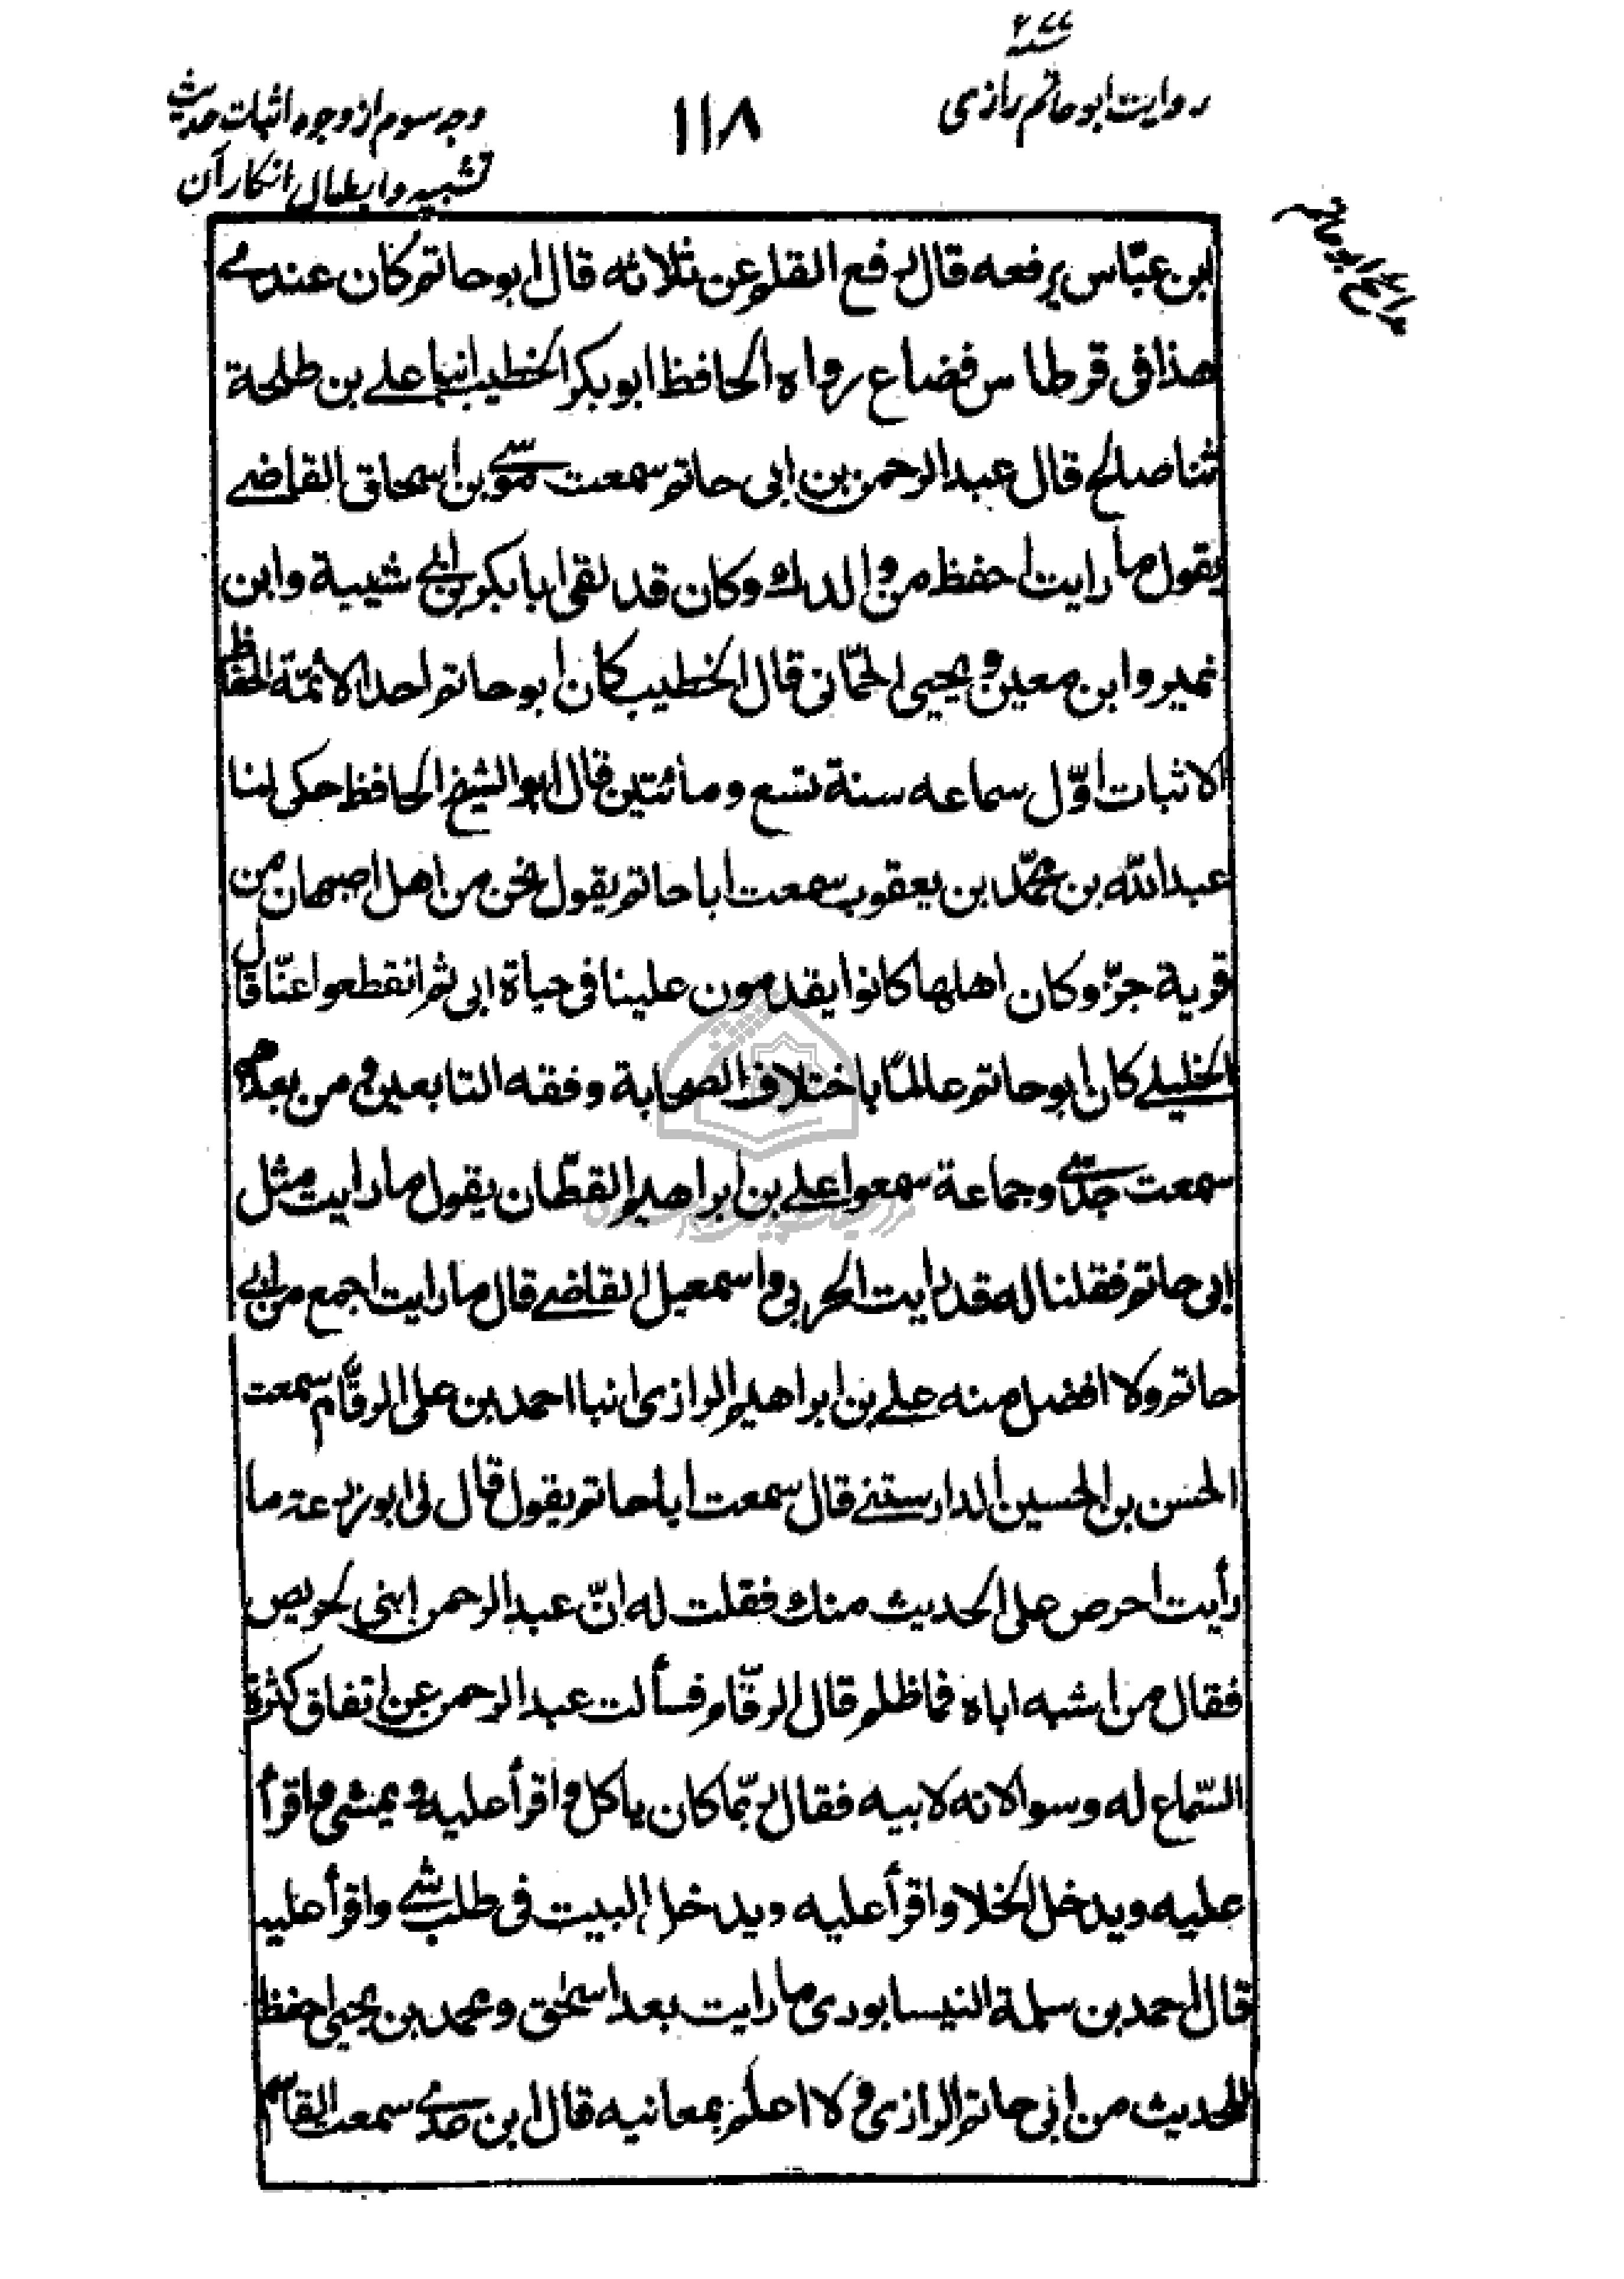 روایت ابو حاتم رازی
۱۱۸
وجه سوم از وجوه اثبات حدیث
تشبیه و ابطال انکار آن
ابن عبّاس یرفعه قال رفع القلم عن ثلاثه قال ابو حاتم کان عندے
هذا فی قرطاس فضاع رواه الحافظ ابو بکر الخطیب انبا علے بن طلحة
ثنا صالح قال عبد الرحمن بن ابی حاتم سمعت موسے بن اسحاق القاضے
یقول ما رایت احفظ من والدك وکان قد لقی ابا بکر بن ابے شیبة وابن
نمیر وابن معین و یحیی الحمّانی قال الخطیب کان ابو حاتم احد الائمّة الحفاظ
الاثبات اوّل سماعه سنة تسع ومائتین قال ابو الشیخ الحافظ حکی لنا
عبد اللّه بن محمّد بن یعقوب سمعت ابا حاتم یقول نحن من اهل اصبهان من
قریة جزّ وکان اهلها کانوا یقدمون علینا فی حیاة ابی ثم انقطعوا عنّا قال
الخلیلے کان ابو حاتم عالمًا باختلاف الصحابة وفقه التابعین و من بعدهم
سمعت جدّے وجماعة سمعوا علے بن ابراهیم القطّان یقول ما رایت مثل
ابی حاتم فقلنا له قد رایت الحربی و اسمعیل القاضے قال ما رایت اجمع من ابے
حاتم ولا افضل منه علے بن ابراهیم الرازی انبا احمد بن علی الرقّام سمعت
الحسن بن الحسین الدارستنے قال سمعت ابا حاتم یقول قال لی ابو زرعة ما
رأیت احرص علی الحدیث منك فقلت له انّ عبد الرحمن ابنی لحریص
فقال من اشبه اباه فما ظلم قال الرقّام فسألت عبد الرحمن عن اتفاق کثرة
السّماع له وسوالاته لابیه فقال ربّما کان یاکل واقرأ علیه و یمشی واقرأ
علیه ویدخل الخلا واقرأ علیه ویدخل البیت فی طلب شے واقرأ علیه
قال احمد بن سلمة النیسابوری ما رایت بعد اسحٰق ومحمد بن یحیی احفظ
للحدیث من ابی حاتم الرازی و لا اعلم بمعانیه قال ابن عدے سمعت القاسم